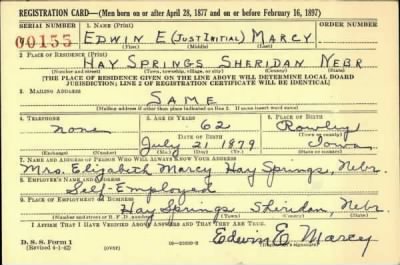 REGISTRATION CARD—(Men born on or after April 28, 1877 and on or before February 16, 1897)
SERIAL NUMBER 1. NAME (Print) ORDER NUMBER
U 00155 EDWIN E (JUST INITIAL) MARCY
(First) (Middle) (Last)
2. PLACE OF RESIDENCE (Print)
HAY SPRINGS SHERIDAN NEBR
(Number and street) (Town, township, village, or city) (County) (State)
[THE PLACE OF RESIDENCE GIVEN ON THE LINE ABOVE WILL DETERMINE LOCAL BOARD
JURISDICTION; LINE 2 OF REGISTRATION CERTIFICATE WILL BE IDENTICAL]
3. MAILING ADDRESS
SAME
[Mailing address if other than place indicated on line 2. If same insert word same]
4. TELEPHONE 5. AGE IN YEARS 6. PLACE OF BIRTH
None 62 Rowley
DATE OF BIRTH (Town or county)
July 21 1879 Iowa
(Exchange) (Number) (Mo.) (Day) (Yr.) (State or country)
7. NAME AND ADDRESS OF PERSON WHO WILL ALWAYS KNOW YOUR ADDRESS
Mrs. Elizabeth Marcy Hay Springs, Nebr.
8. EMPLOYER'S NAME AND ADDRESS
Self-Employed
9. PLACE OF EMPLOYMENT OR BUSINESS
Hay Springs, Sheridan, Nebr.
(Number and street or R. F. D. number) (Town) (County) (State)
I AFFIRM THAT I HAVE VERIFIED ABOVE ANSWERS AND THAT THEY ARE TRUE.
D. S. S. Form 1 Edwin E. Marcy
(Revised 4-1-42) (OVER)